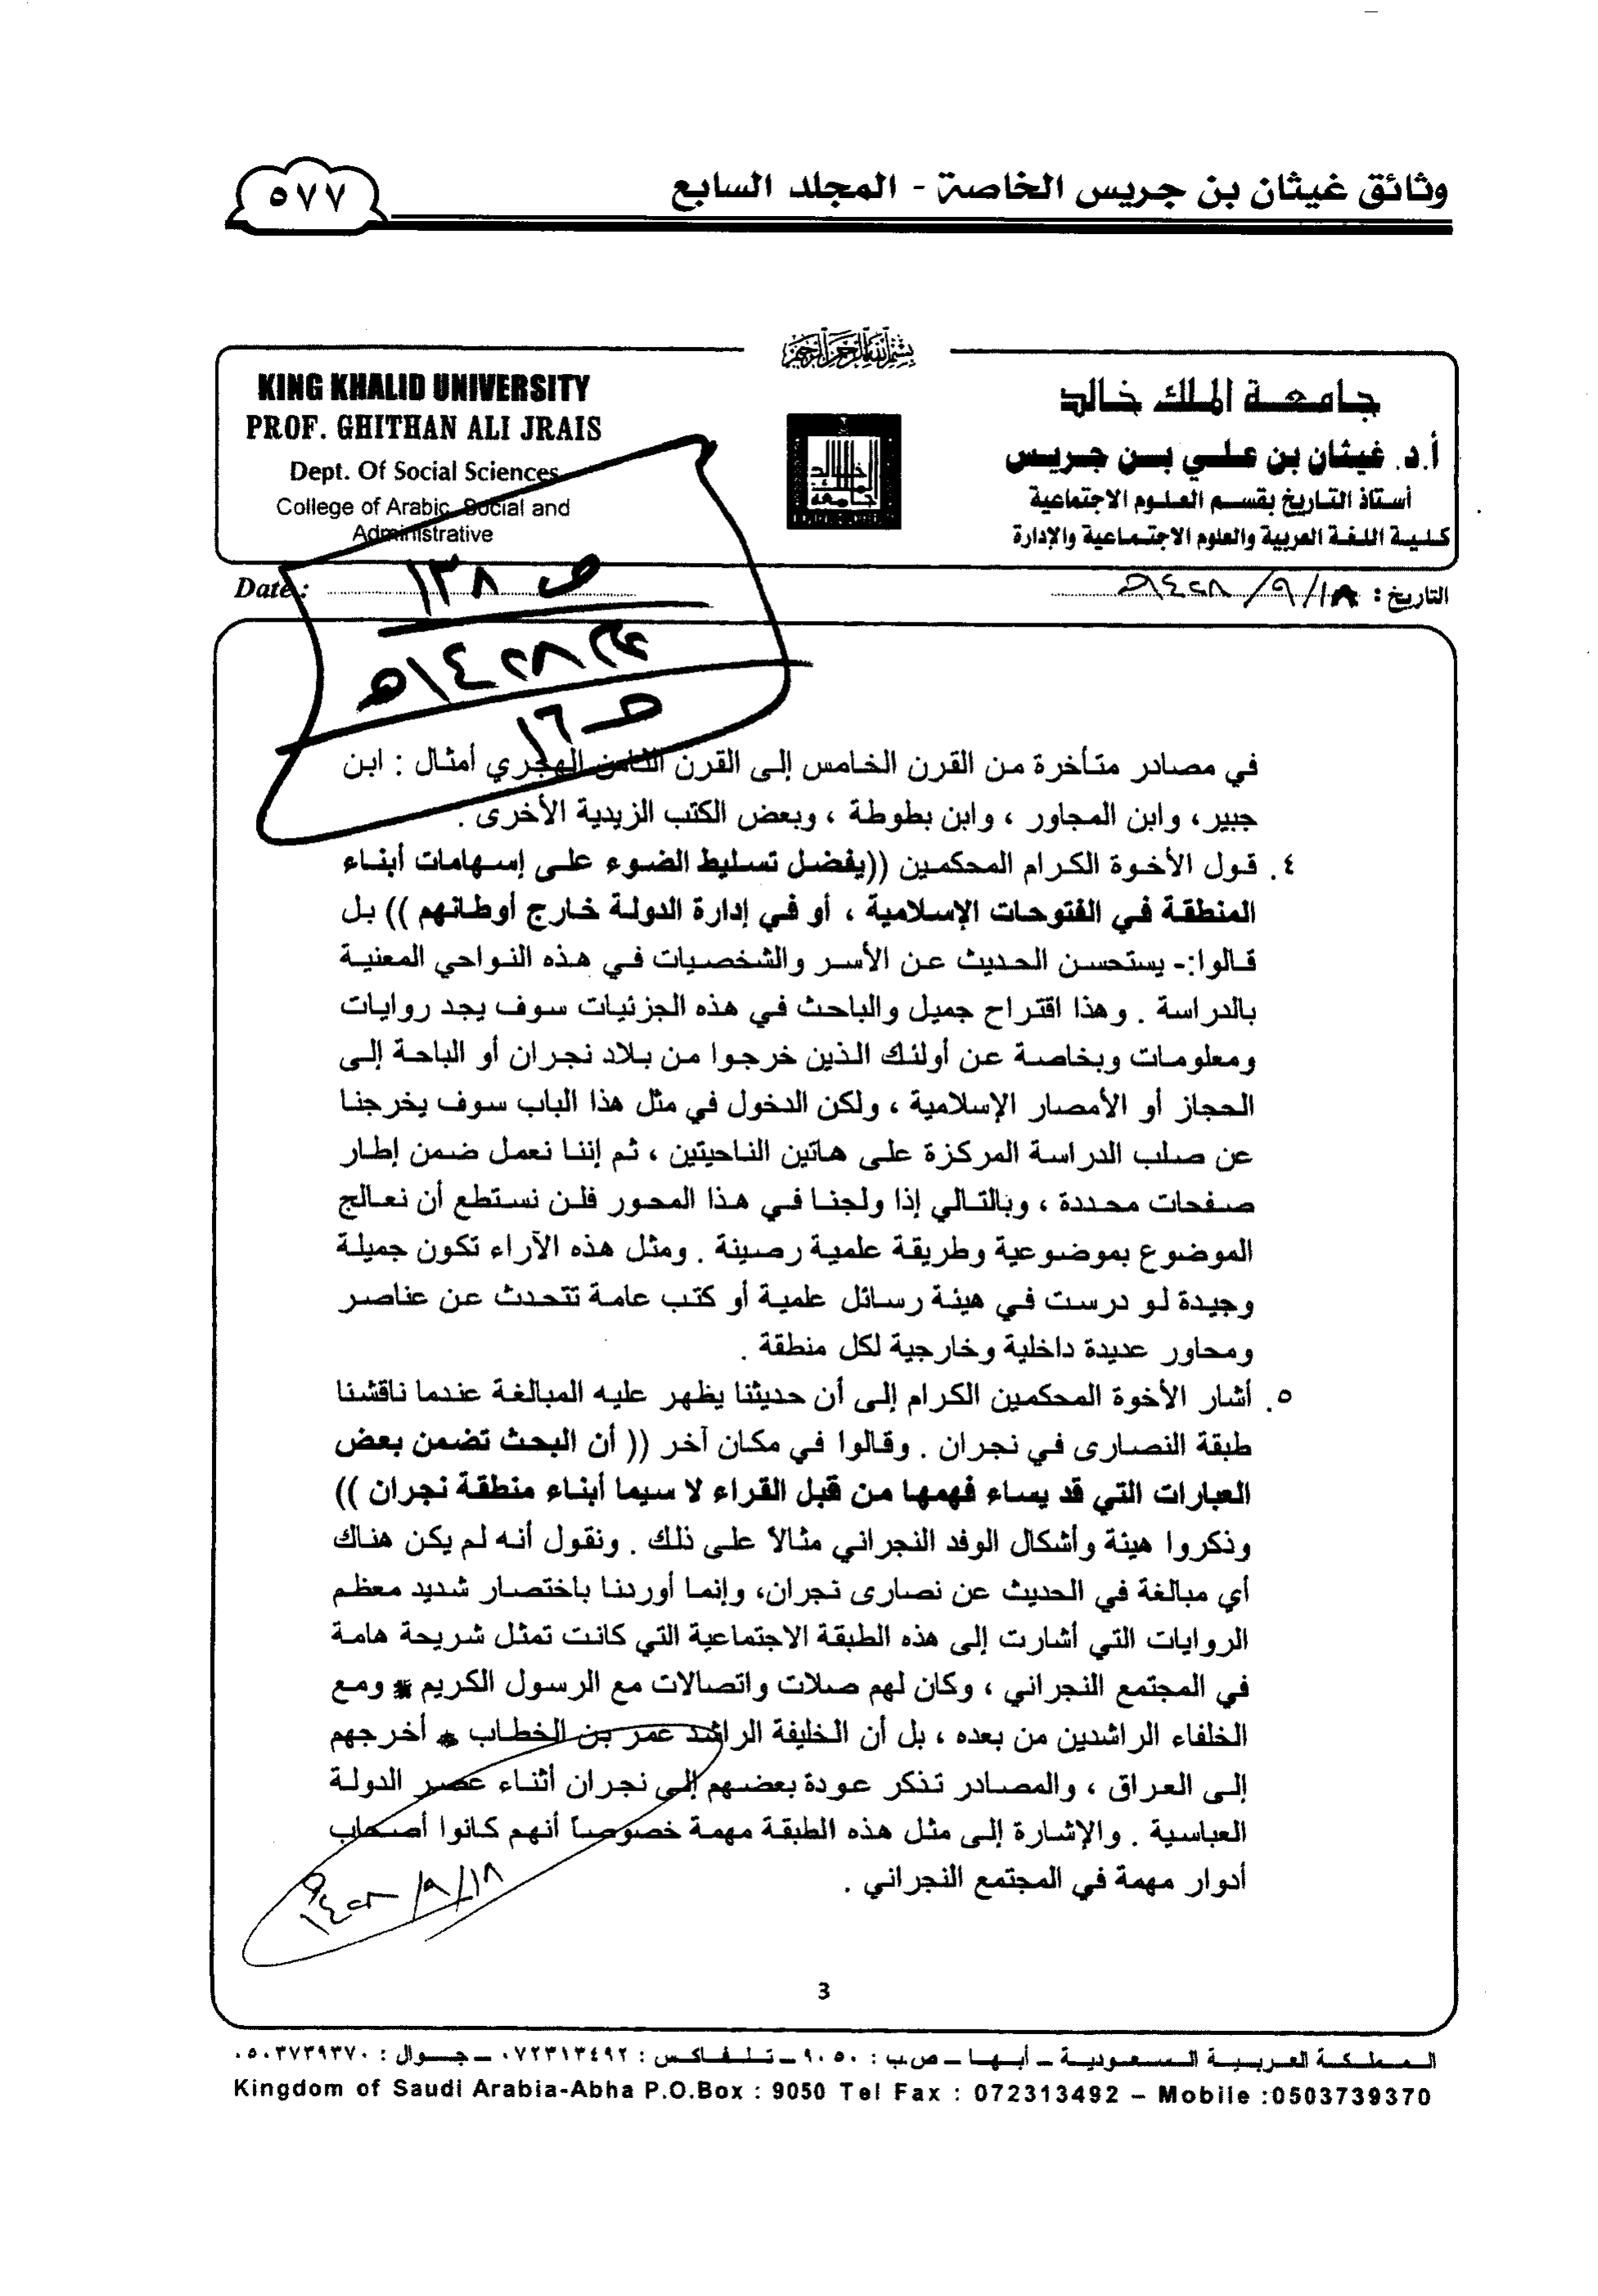 وثائق غيثان بن جريس الخاصة - المجلد السابع
٥٧٧
بسم الله الرحمن الرحيم
جامعة الملك خالد
أ.د. غيثان بن علي بن جريس
أستاذ التاريخ بقسم العلوم الاجتماعية
كلية اللغة العربية والعلوم الاجتماعية والإدارة
KING KHALID UNIVERSITY
PROF. GHITHAN ALI JRAIS
Dept. Of Social Sciences
College of Arabic, Social and
Administrative
التاريخ : ١٨/٩/١٤٢٨هـ
Date :
ص ١٣٨
عام ١٤٢٨هـ
ص ١٦
في مصادر متأخرة من القرن الخامس إلى القرن الثامن الهجري أمثال : ابن
جبير، وابن المجاور ، وابن بطوطة ، وبعض الكتب الزيدية الأخرى .
٤. قول الأخوة الكرام المحكمين ((يفضل تسليط الضوء على إسهامات أبناء
المنطقة في الفتوحات الإسلامية ، أو في إدارة الدولة خارج أوطانهم )) بل
قالوا:- يستحسن الحديث عن الأسر والشخصيات في هذه النواحي المعنية
بالدراسة . وهذا اقتراح جميل والباحث في هذه الجزئيات سوف يجد روايات
ومعلومات وبخاصة عن أولئك الذين خرجوا من بلاد نجران أو الباحة إلى
الحجاز أو الأمصار الإسلامية ، ولكن الدخول في مثل هذا الباب سوف يخرجنا
عن صلب الدراسة المركزة على هاتين الناحيتين ، ثم إننا نعمل ضمن إطار
صفحات محددة ، وبالتالي إذا ولجنا في هذا المحور فلن نستطع أن نعالج
الموضوع بموضوعية وطريقة علمية رصينة . ومثل هذه الآراء تكون جميلة
وجيدة لو درست في هيئة رسائل علمية أو كتب عامة تتحدث عن عناصر
ومحاور عديدة داخلية وخارجية لكل منطقة .
٥. أشار الأخوة المحكمين الكرام إلى أن حديثنا يظهر عليه المبالغة عندما ناقشنا
طبقة النصارى في نجران . وقالوا في مكان آخر (( أن البحث تضمن بعض
العبارات التي قد يساء فهمها من قبل القراء لا سيما أبناء منطقة نجران ))
وذكروا هيئة وأشكال الوفد النجراني مثالاً على ذلك . ونقول أنه لم يكن هناك
أي مبالغة في الحديث عن نصارى نجران، وإنما أوردنا باختصار شديد معظم
الروايات التي أشارت إلى هذه الطبقة الاجتماعية التي كانت تمثل شريحة هامة
في المجتمع النجراني ، وكان لهم صلات واتصالات مع الرسول الكريم ومع
الخلفاء الراشدين من بعده ، بل أن الخليفة الراشد عمر بن الخطاب أخرجهم
إلى العراق ، والمصادر تذكر عودة بعضهم إلى نجران أثناء عصر الدولة
العباسية . والإشارة إلى مثل هذه الطبقة مهمة خصوصاً أنهم كانوا أصحاب
أدوار مهمة في المجتمع النجراني .
١٨/٩/١٤٢٨هـ
3
المملكة العربية السعودية – أبها – ص.ب : ٩٠٥٠ – تلفاكس : ٠٧٢٣١٣٤٩٢ – جوال : ٠٥٠٣٧٣٩٣٧٠
Kingdom of Saudi Arabia-Abha P.O.Box : 9050 Tel Fax : 072313492 – Mobile :0503739370